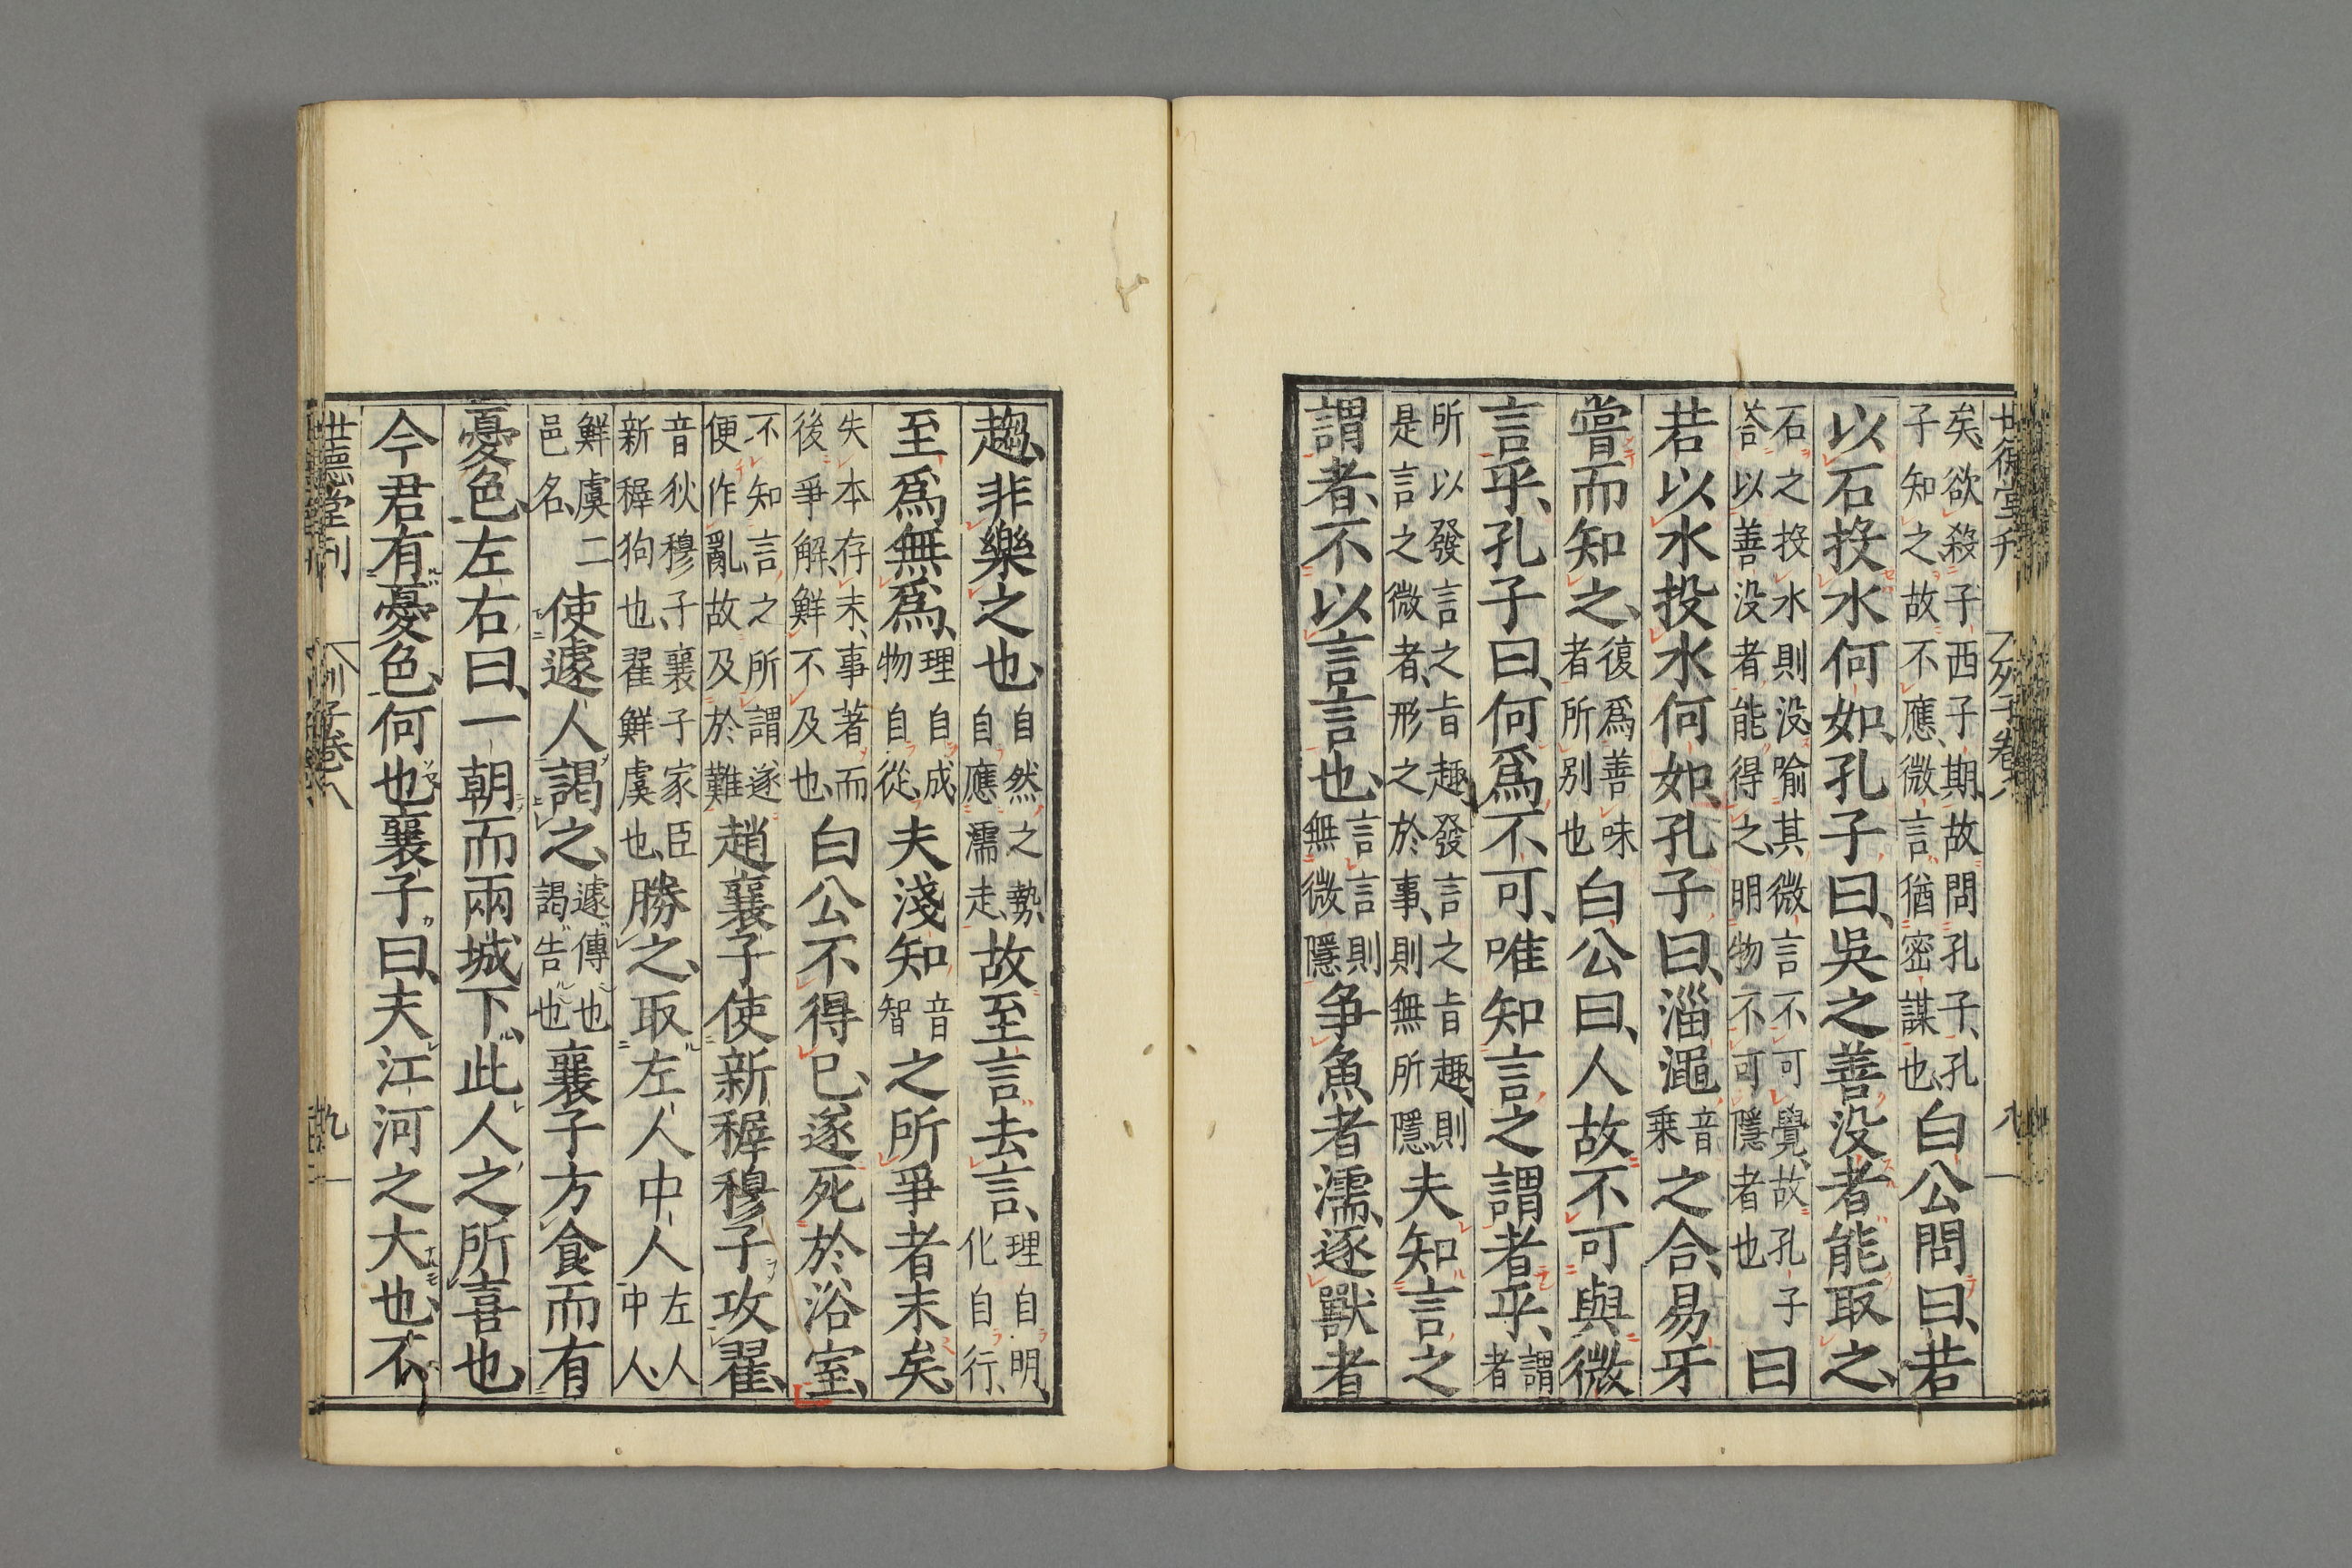 世德堂刊 列子卷八 八
矣欲殺子西子期故問孔子孔
子知之故不應微言猶密謀也
白公問曰若
以石投水何如孔子曰吳之善没者能取之
石之投水則没喻其微言不可覺故孔子
荅以善没者能得之明物不可隱者也
曰
若以水投水何如孔子曰淄澠
音
乗
之合易牙
嘗而知之
復爲善味
者所别也
白公曰人故不可與微
言乎孔子曰何爲不可唯知言之謂者乎
謂
者
所以發言之旨趣發言之旨趣則
是言之微者形之於事則無所隱
夫知言之
謂者不以言言也
言言則
無微隱
争魚者濡逐獸者
趨非樂之也
自然之勢
自應濡走
故至言去言
理自明
化自行
至爲無爲
理自成
物自從
夫淺知
音
智
之所爭者末矣
失本存末事著而
後爭解鮮不及也
白公不得已遂死於浴室
不知言之所謂遂
便作亂故及於難
趙襄子使新稺穆子攻翟
音狄穆子襄子家臣
新稺狗也翟鮮虞也
勝之取左人中人
左人
中人
鮮虞二
邑名
使遽人謁之
遽傳也
謁告也
襄子方食而有
憂色左右曰一朝而兩城下此人之所喜也
今君有憂色何也襄子曰夫江河之大也不
世德堂刊 列子卷八 九